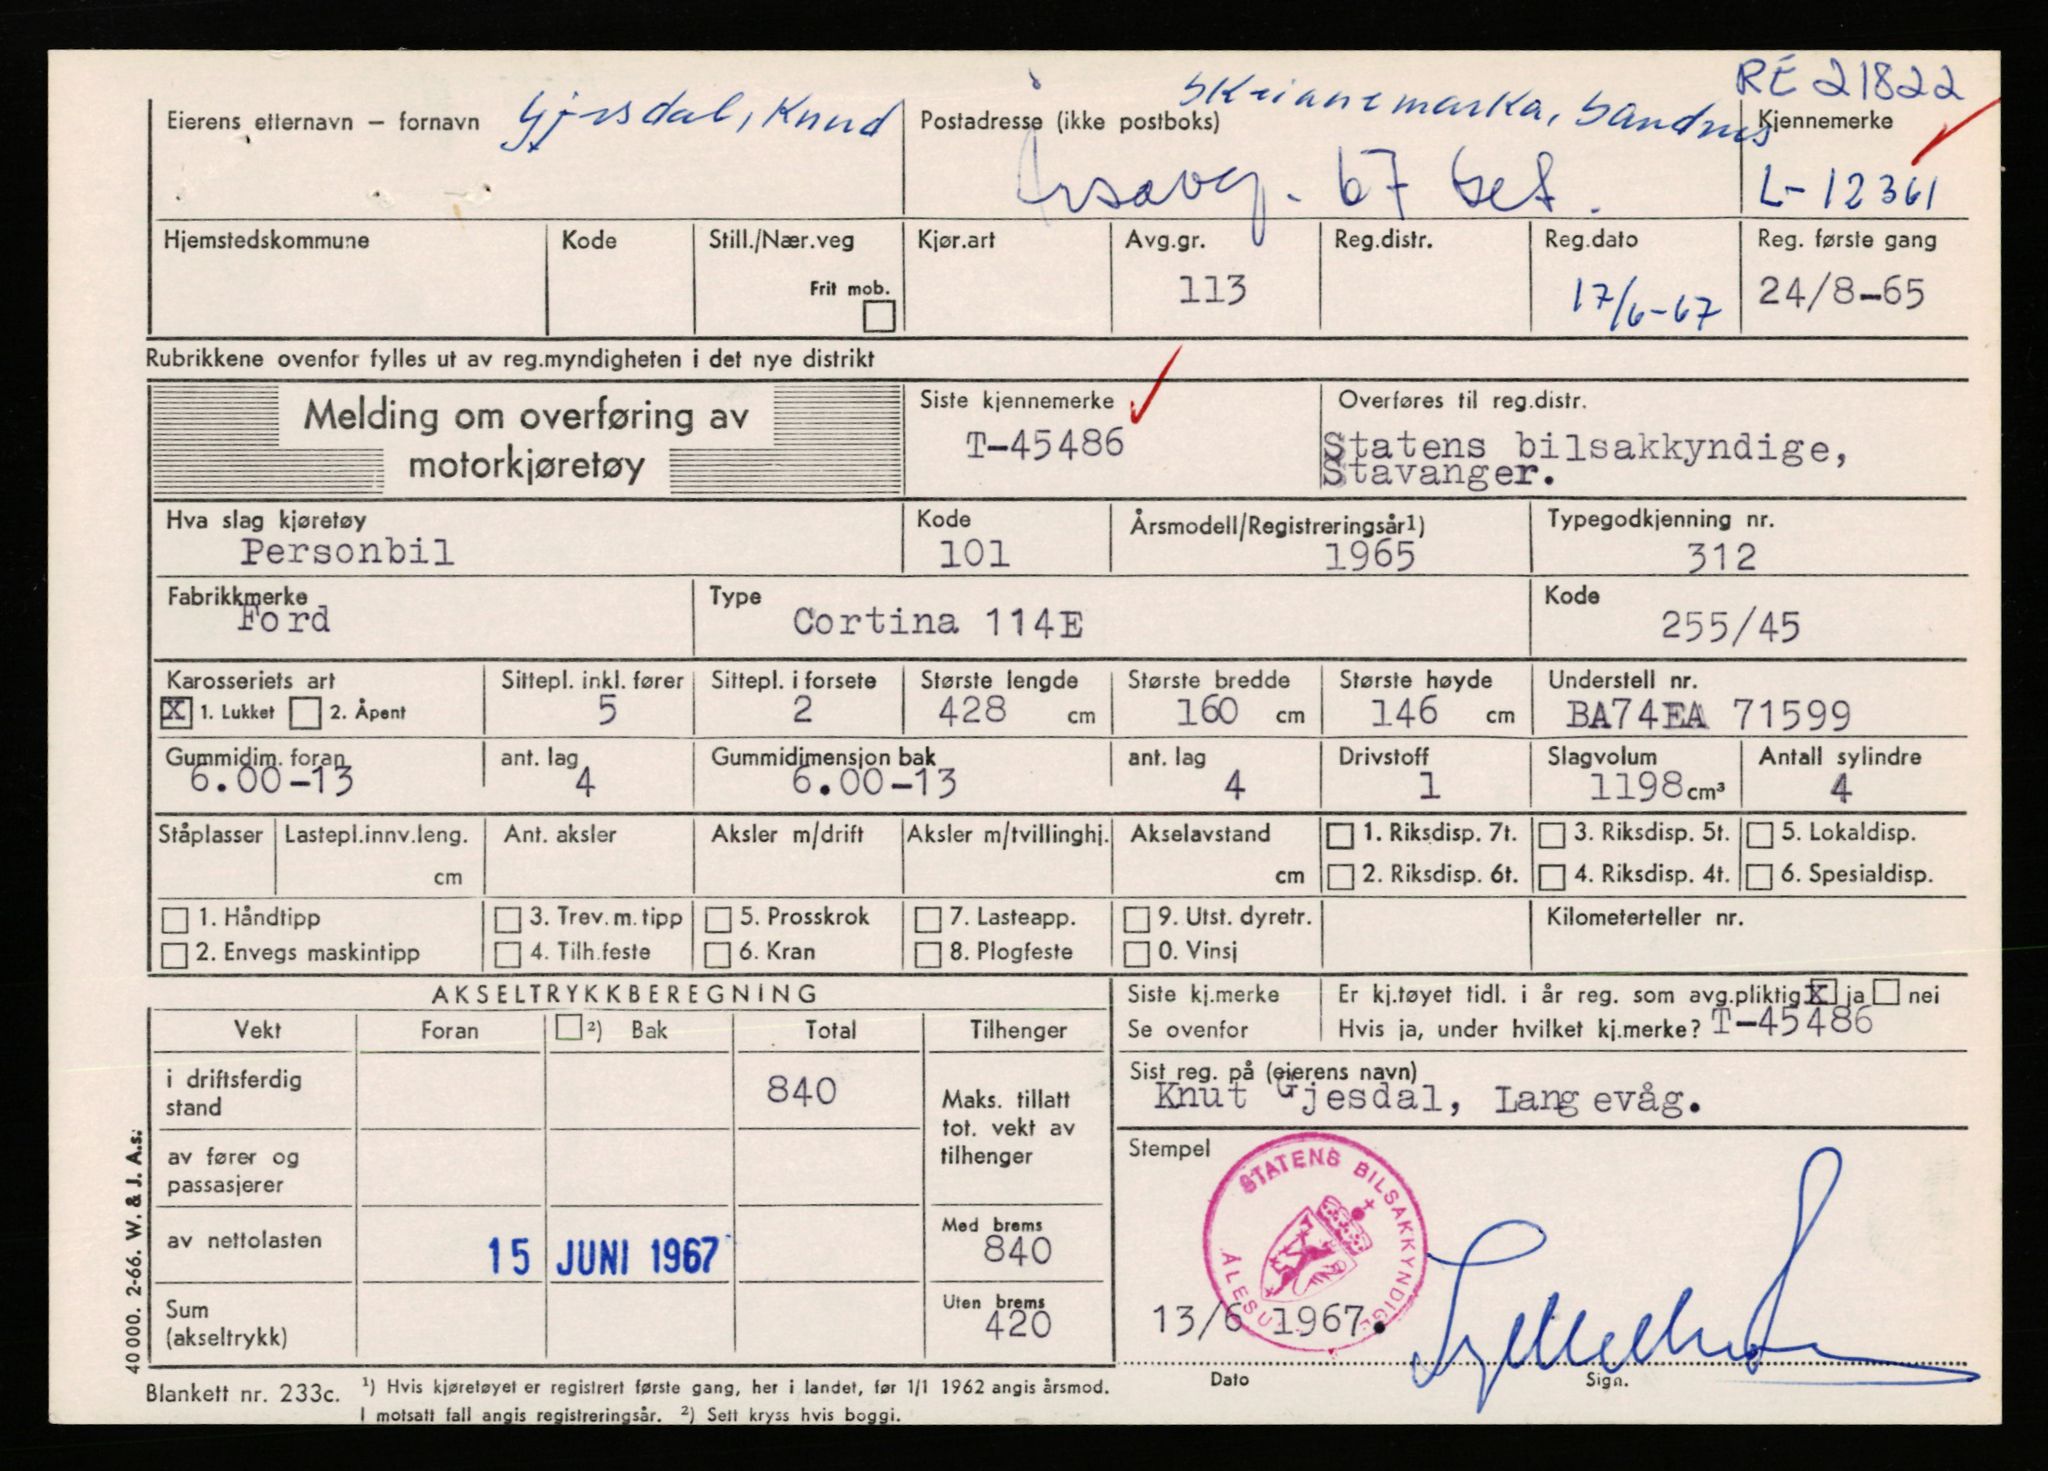 RE 21822
Eierens etternavn – fornavn Gjesdal, Knud
Postadresse (ikke postboks) Skeianemarka, Sandnes
67
Kjennemerke
L-12361
Hjemstedskommune Kode Still./Nær.veg Kjør.art Avg.gr. Reg.distr. Reg.dato Reg. første gang
Frit mob. 113 17/6-67 24/8-65
Rubrikkene ovenfor fylles ut av reg.myndigheten i det nye distrikt
Melding om overføring av
motorkjøretøy
Siste kjennemerke
T-45486
Overføres til reg.distr.
Statens bilsakkyndige,
Stavanger.
Hva slag kjøretøy Kode Årsmodell/Registreringsår1) Typegodkjenning nr.
Personbil 101 1965 312
Fabrikkmerke Type Kode
Ford Cortina 114E 255/45
Karosseriets art Sittepl. inkl. fører Sittepl. i forsete Største lengde Største bredde Største høyde Understell nr.
X 1. Lukket 2. Åpent 5 2 428 cm 160 cm 146 cm BA74EA 71599
Gummidim. foran ant. lag Gummidimensjon bak ant. lag Drivstoff Slagvolum Antall sylindre
6.00-13 4 6.00-13 4 1 1198 cm³ 4
Ståplasser Lastepl.innv.leng. Ant. aksler Aksler m/drift Aksler m/tvillinghj. Akselavstand 1. Riksdisp. 7t. 3. Riksdisp. 5t. 5. Lokaldisp.
cm cm 2. Riksdisp. 6t. 4. Riksdisp. 4t. 6. Spesialdisp.
1. Håndtipp 3. Trev.m.tipp 5. Prosskrok 7. Lasteapp. 9. Utst. dyretr. Kilometerteller nr.
2. Envegs maskintipp 4. Tilh.feste 6. Kran 8. Plogfeste 0. Vinsj
AKSELTRYKKBEREGNING
Vekt Foran 2) Bak Total Tilhenger
i driftsferdig
stand 840
Maks. tillatt
tot. vekt av
tilhenger
av fører og
passasjerer
av nettolasten 15 JUNI 1967
Med brems
840
Sum
(akseltrykk)
Uten brems
420
Siste kj.merke Er kj.tøyet tidl. i år reg. som avg.pliktig X ja nei
Se ovenfor Hvis ja, under hvilket kj.merke? T-45486
Sist reg. på (eierens navn)
Knut Gjesdal, Langevåg.
Stempel
STATENS BILSAKKYNDIGE
ÅLESUND
13/6 1967.
Dato Sign.
40 000. 2-66. W. & J. A.s.
Blankett nr. 233c. 1) Hvis kjøretøyet er registrert første gang, her i landet, før 1/1 1962 angis årsmod.
I motsatt fall angis registreringsår. 2) Sett kryss hvis boggi.